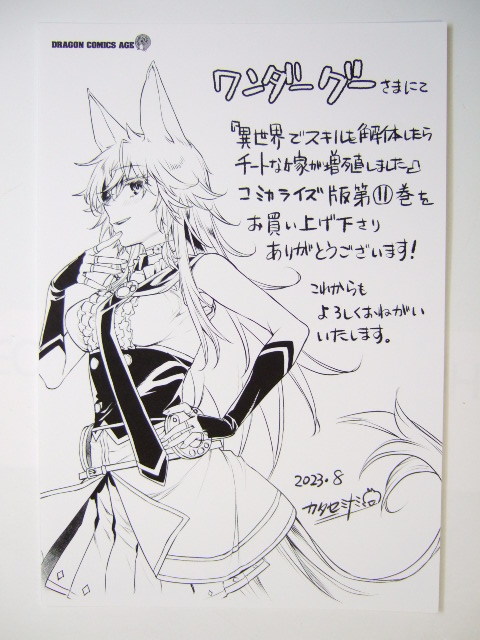 DRAGON COMICS AGE
ワンダーグーさまにて
『異世界でスキルを解体したら
チートな嫁が増殖しました』
コミカライズ版第⑪巻を
お買い上げ下さり
ありがとうございます!
これからも
よろしくおねがい
いたします。
2023.8
カタセミナミ